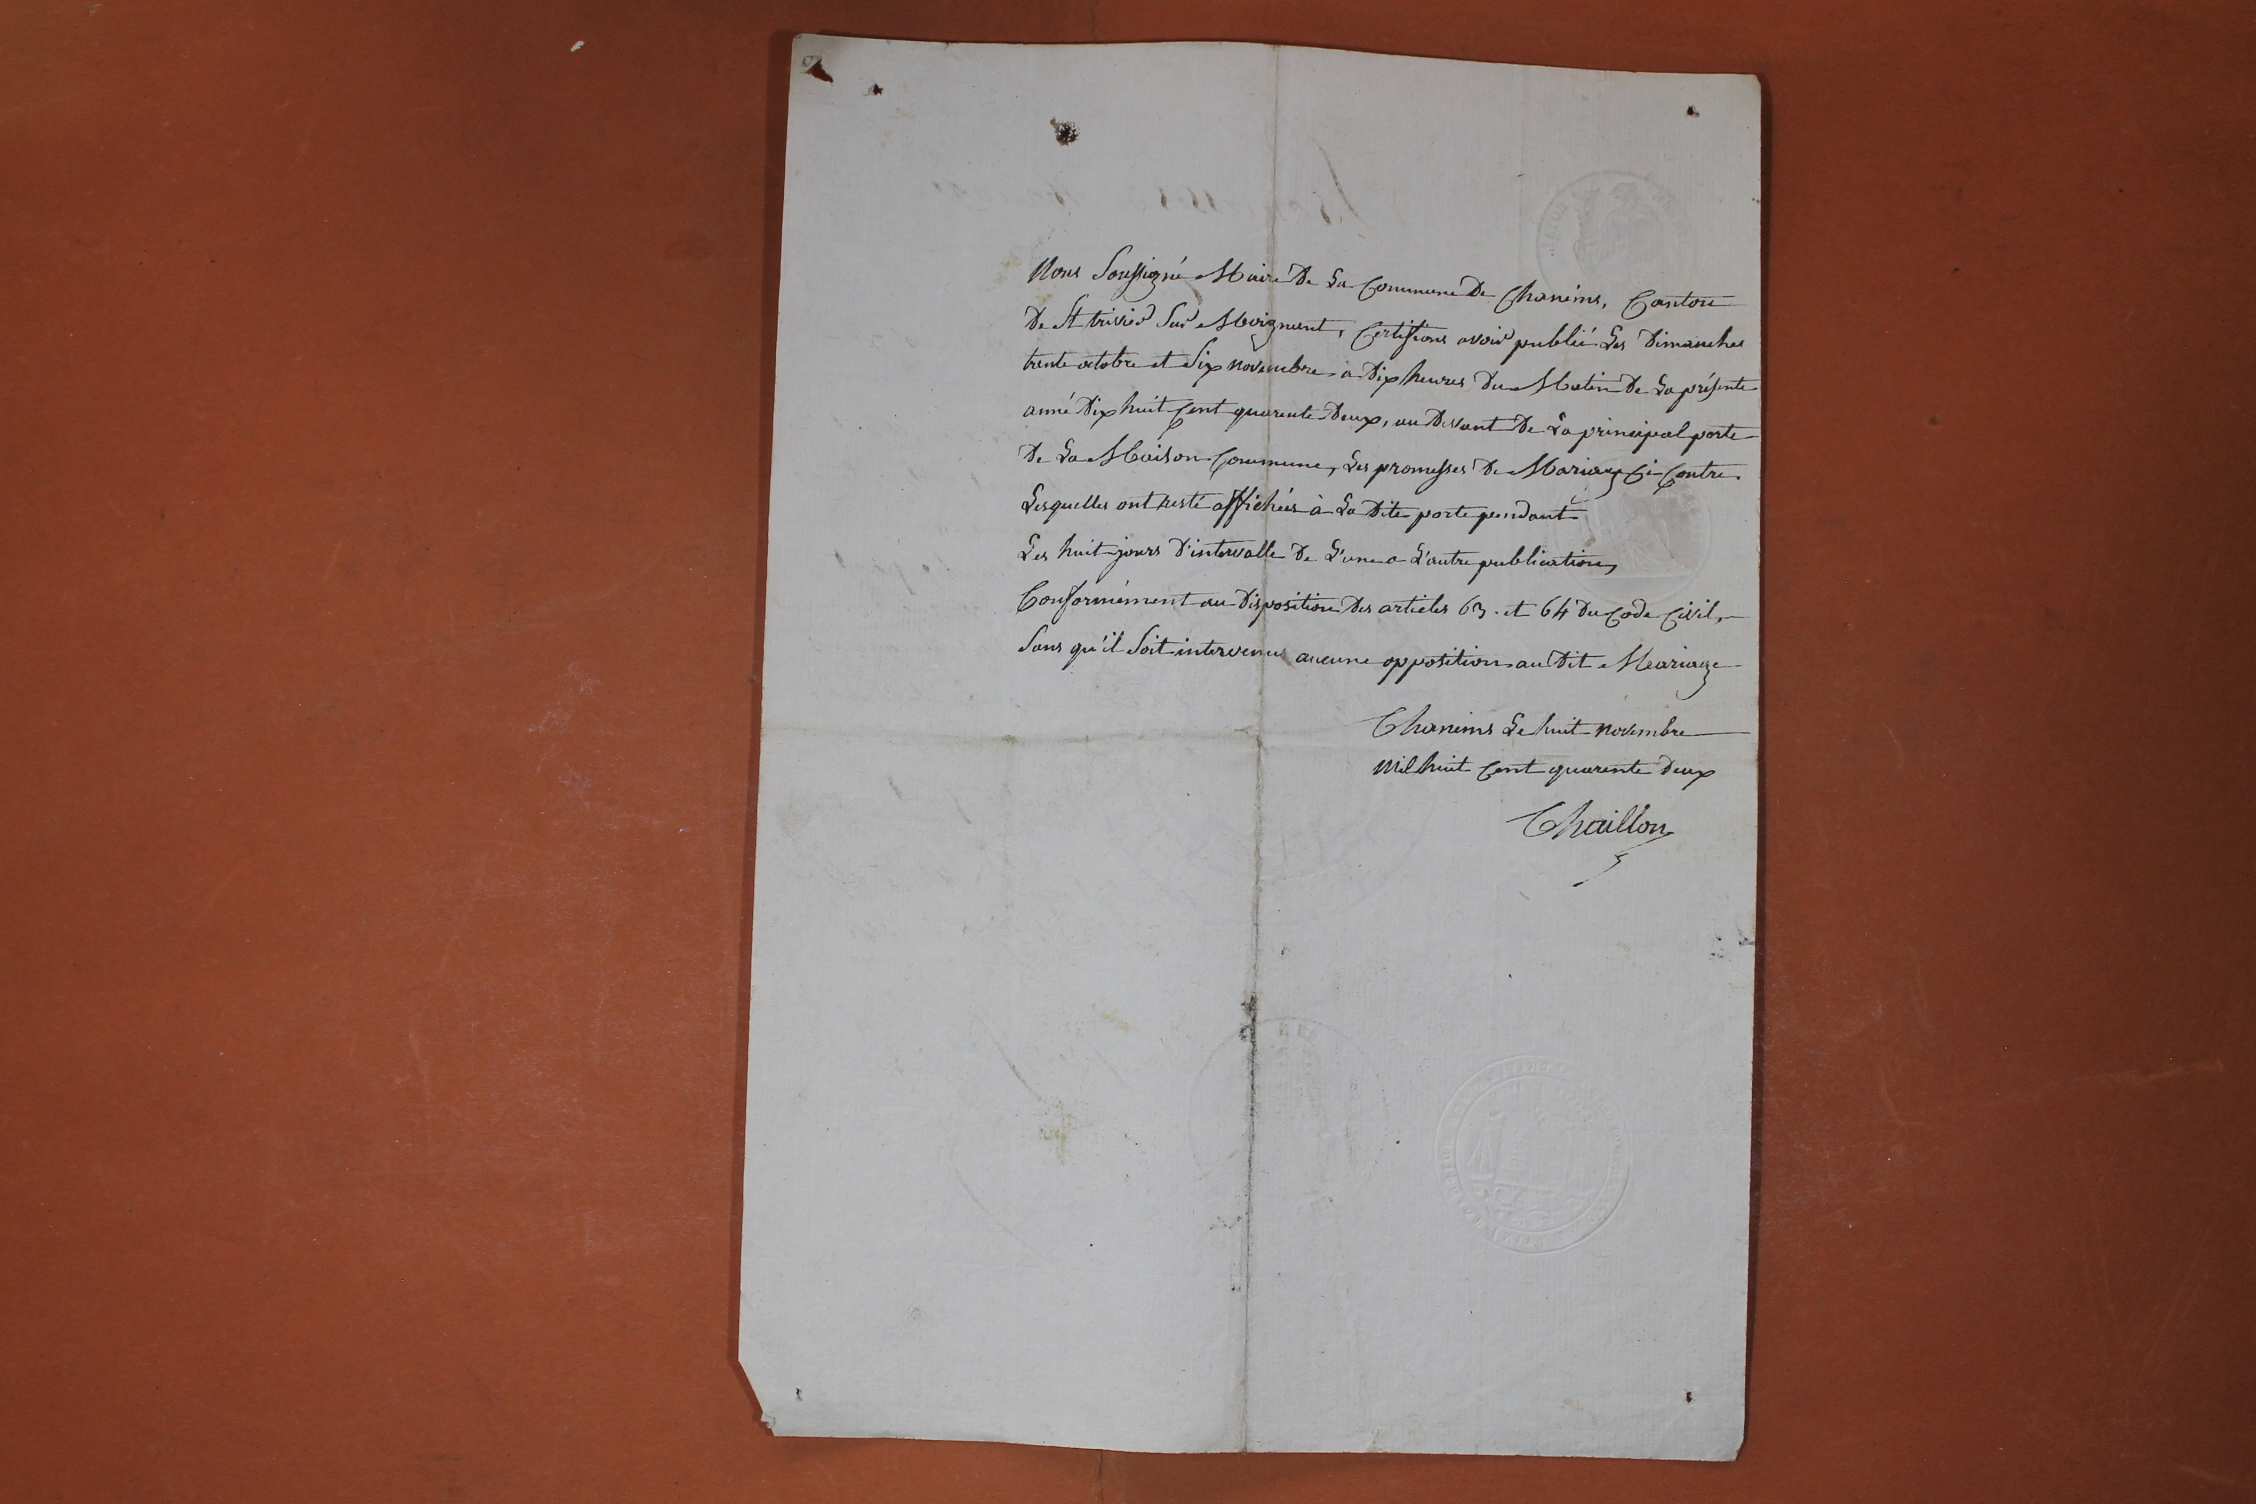 Nous Soussigné Maire De La Commune De Chaneins, Canton
De St trivier Sur Moignant, Certifions avoir publié Les Dimanches
trente octobre et Six novembre a Dix heures Du Matin De La présente
anné Dix huit Cent quarente Deux, au Devant De La principal porte
De La Maison Commune, Les promesses De Mariage Ci-Contre
Lesquelles ont resté affichées à La Dite porte pendant
Les huit jours D'intervalle De L'une a L'autre publication,
Conformément au Disposition Des articles 63. et 64 Du Code Civil,
Sans qu'il Soit intervenus aucune opposition au Dit Mariage
Chaneins Le huit novembre
Mil huit Cent quarente Deux
Chaillon